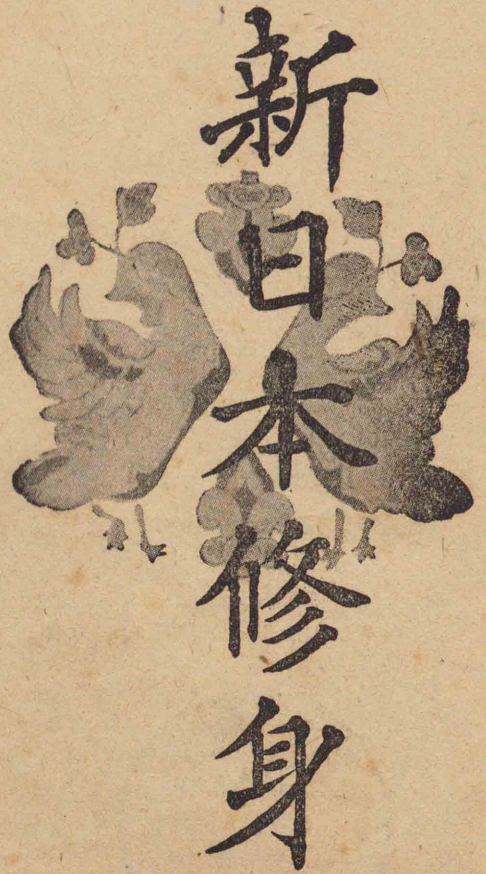 新日本修身